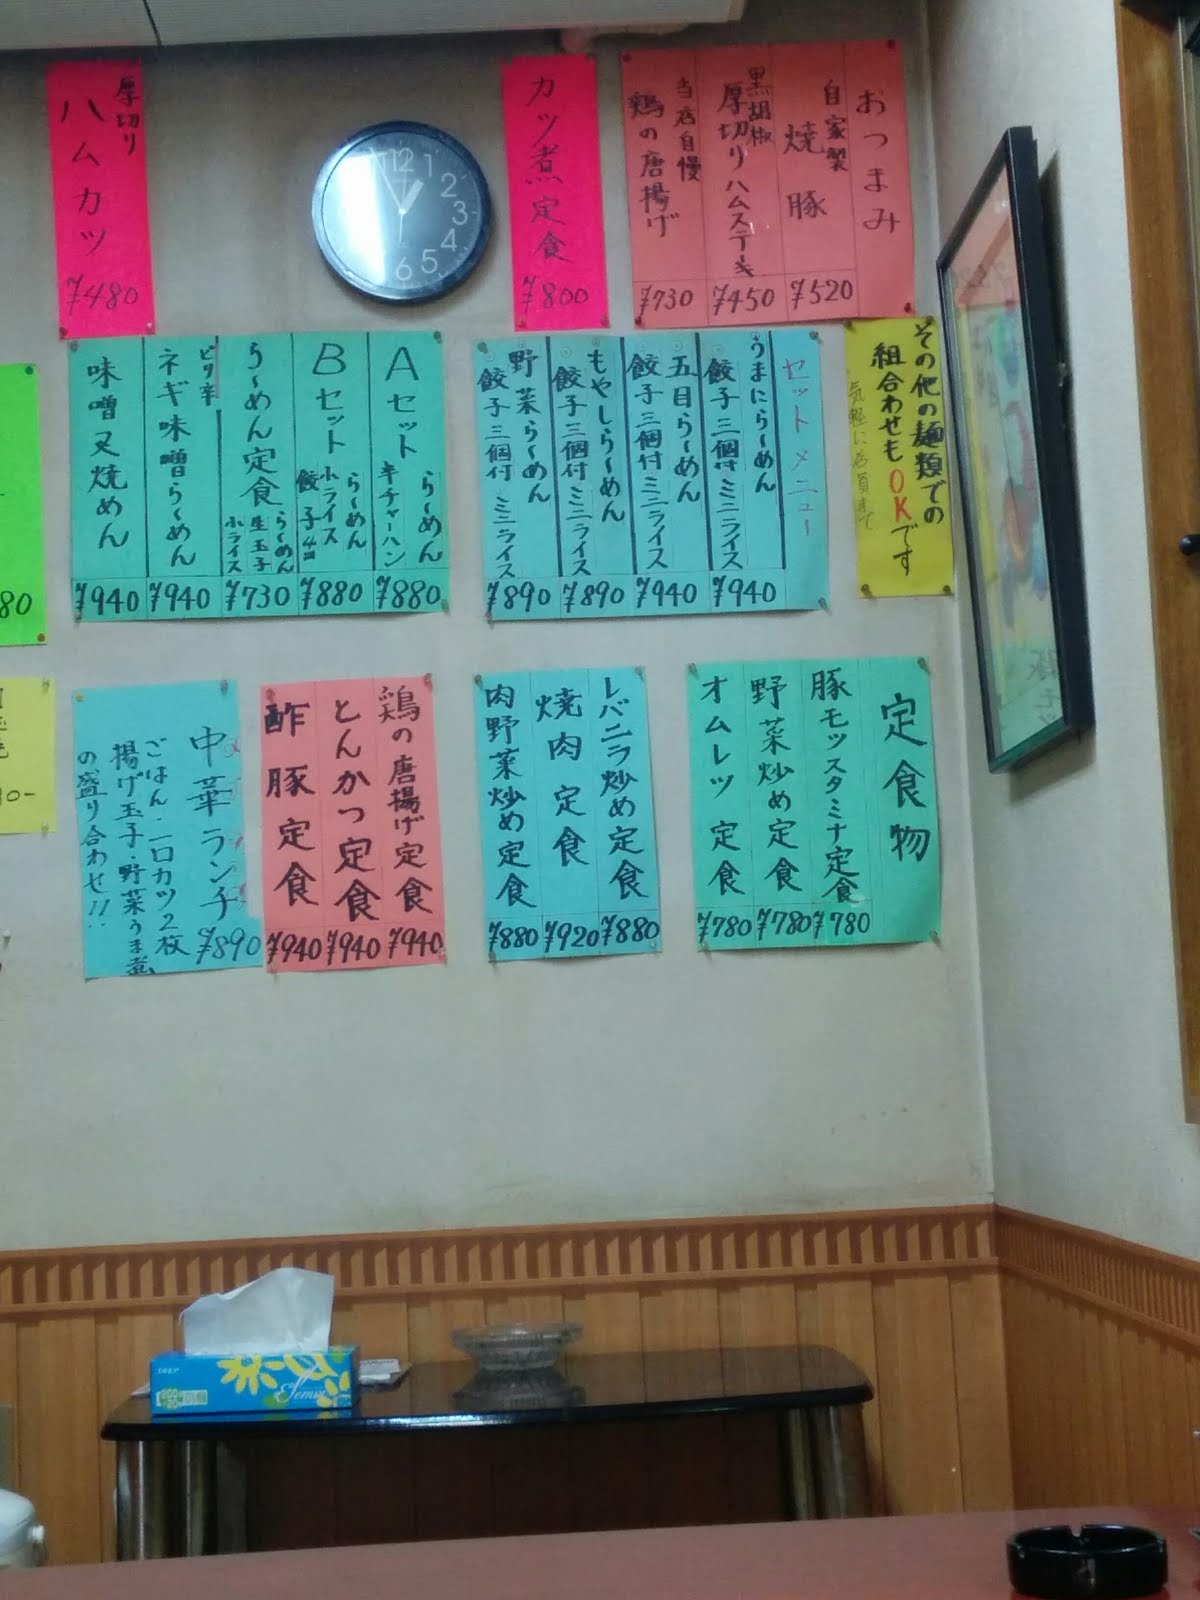 おつまみ
自家製
焼豚
¥520
黒胡椒
厚切りハムステーキ
¥450
当店自慢
鶏の唐揚げ
¥730
カツ煮定食
¥800
12
1
2
3
4
5
6
厚切り
ハムカツ
¥480
その他の麺類での
組合わせもOKです
気軽に店員まで
セットメニュー
うまにら〜めん
餃子三個付ミニライス
¥940
五目ら〜めん
餃子三個付ミニライス
¥940
もやしら〜めん
餃子三個付ミニライス
¥890
野菜ら〜めん
餃子三個付ミニライス
¥890
Aセット
ら〜めん
半チャーハン
¥880
Bセット
ら〜めん
小ライス
餃子4コ
¥880
ら〜めん定食
ら〜めん
生玉子
小ライス
¥730
ピリ辛
ネギ味噌ら〜めん
¥940
味噌叉焼めん
¥940
80
定食物
豚モツスタミナ定食
¥780
野菜炒め定食
¥780
オムレツ定食
¥780
レバニラ炒め定食
¥880
焼肉定食
¥920
肉野菜炒め定食
¥880
鶏の唐揚げ定食
¥940
とんかつ定食
¥940
酢豚定食
¥940
中華ランチ
¥890
ごはん・一口カツ2枚
揚げ玉子・野菜うま煮
の盛り合わせ!!
Elemoi